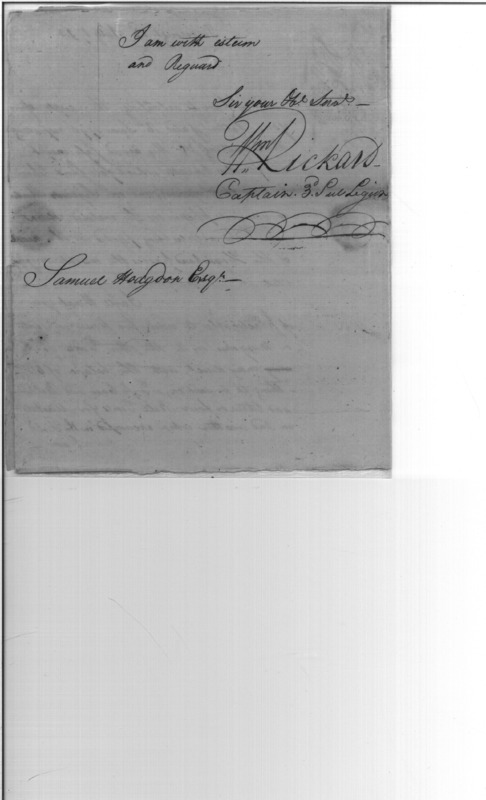 I am with esteem
and Reguard
Sir your Obt. Servt.
Wm. Rickard
Captain. 3d. Sub Legion
Samuel Hodgdon Esqr.